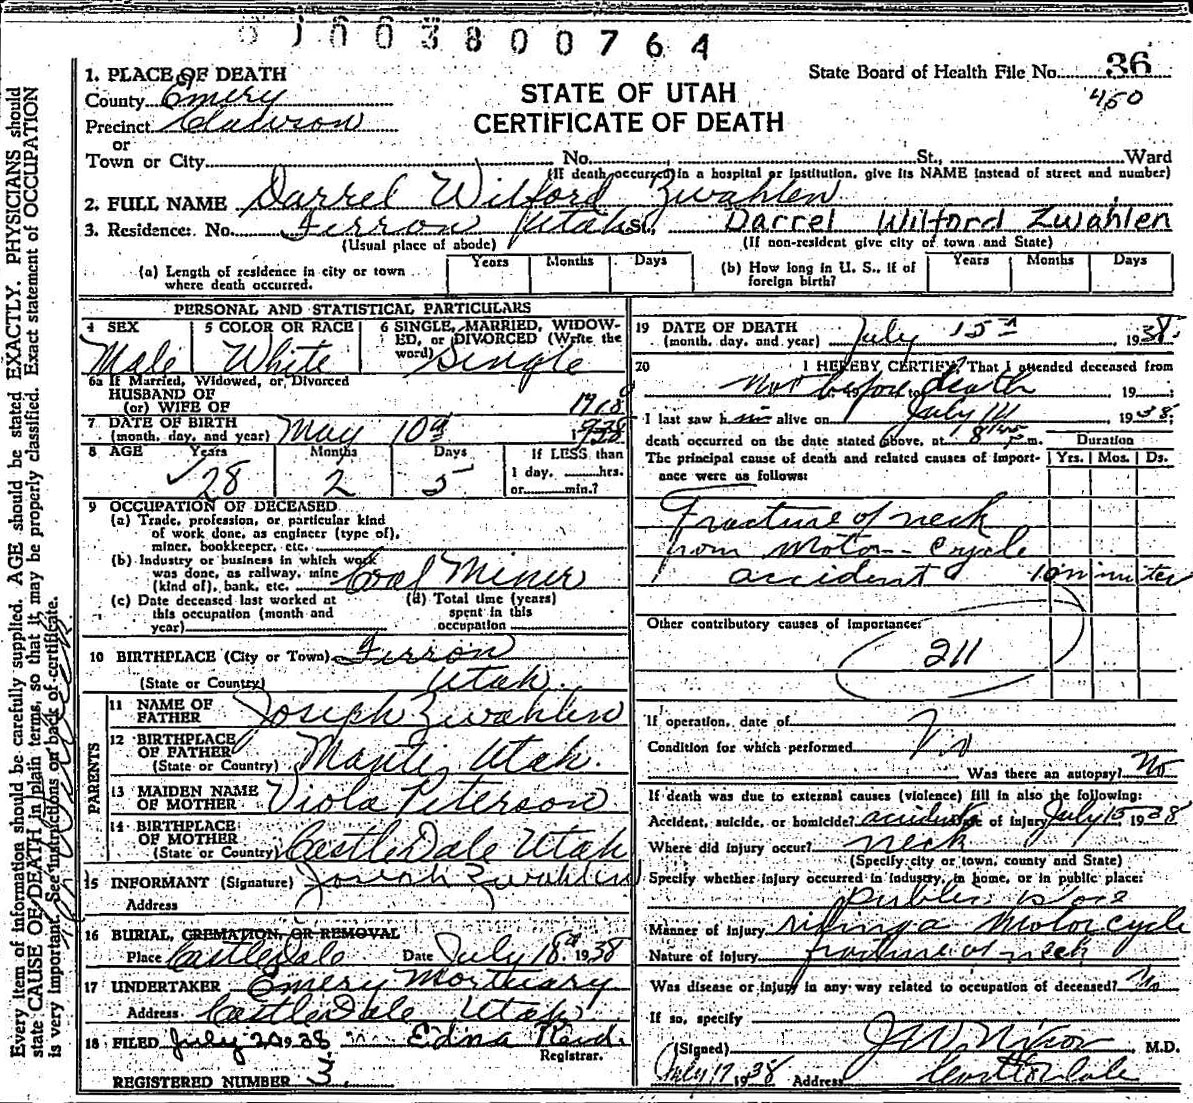 01003800764
1. PLACE OF DEATH
County Emery
Precinct Clawson
or
Town or City No. St., Ward
State Board of Health File No. 36
450
STATE OF UTAH
CERTIFICATE OF DEATH
(If death occurred in a hospital or institution, give its NAME instead of street and number)
2. FULL NAME Darrel Wilford Zwahlen
3. Residence: No. Ferron Utah St. Darrel Wilford Zwahlen
(Usual place of abode) (If non-resident give city of town and State)
(a) Length of residence in city or town where death occurred. Years Months Days
(b) How long in U. S., if of foreign birth? Years Months Days
PERSONAL AND STATISTICAL PARTICULARS
4 SEX Male
5 COLOR OR RACE White
6 SINGLE, MARRIED, WIDOWED, or DIVORCED (Write the word) Single
6a If Married, Widowed, or Divorced
HUSBAND OF
(or) WIFE OF
7 DATE OF BIRTH
(month, day, and year) May 10
8 AGE Years 28 Months 2 Days 5 If LESS than
1 day, hrs.
or min.?
9 OCCUPATION OF DECEASED
(a) Trade, profession, or particular kind
of work done, as engineer (type of),
miner, bookkeeper, etc.
(b) Industry or business in which work
was done, as railway, mine
(kind of), bank, etc. Coal Miner
(c) Date deceased last worked at
this occupation (month and
year)
(d) Total time (years)
spent in this
occupation
10 BIRTHPLACE (City or Town) Ferron
(State or Country) Utah.
PARENTS
11 NAME OF
FATHER Joseph Zwahlen
12 BIRTHPLACE
OF FATHER
(State or Country) Manti, Utah.
13 MAIDEN NAME
OF MOTHER Viola Peterson
14 BIRTHPLACE
OF MOTHER
(State or Country) Castle Dale Utah
15 INFORMANT (Signature) Joseph Zwahlen
Address
16 BURIAL, CREMATION, OR REMOVAL
Place Castle Dale Date July 18 1938
17 UNDERTAKER Emery Mortuary
Address Castle Dale Utah
18 FILED July 20 1938 Edna Reid
Registrar.
REGISTERED NUMBER 3.
19 DATE OF DEATH
(month, day, and year) July 15th 1938
20 I HEREBY CERTIFY, That I attended deceased from
Not before death 19 ;
I last saw him alive on July 1938;
death occurred on the date stated above, at 8 p.m.
Duration
The principal cause of death and related causes of importance were as follows: Yrs. Mos. Ds.
Fracture of neck
from Motor-cycle
accident 10 minutes
Other contributory causes of importance:
211
If operation, date of No
Condition for which performed
Was there an autopsy? No
If death was due to external causes (violence) fill in also the following:
Accident, suicide, or homicide? accident Date of injury July 15 1938
Where did injury occur? neck
(Specify city or town, county and State)
Specify whether injury occurred in industry, in home, or in public place:
public
Manner of injury riding a Motorcycle
Nature of injury fracture of neck
Was disease or injury in any way related to occupation of deceased? No
If so, specify
(Signed) J W Nixon M.D.
July 17 1938 Address Castle Dale
Every item of information should be carefully supplied. AGE should be stated EXACTLY. PHYSICIANS should
state CAUSE OF DEATH in plain terms, so that it may be properly classified. Exact statement of OCCUPATION
is very important. See instructions on back of certificate.